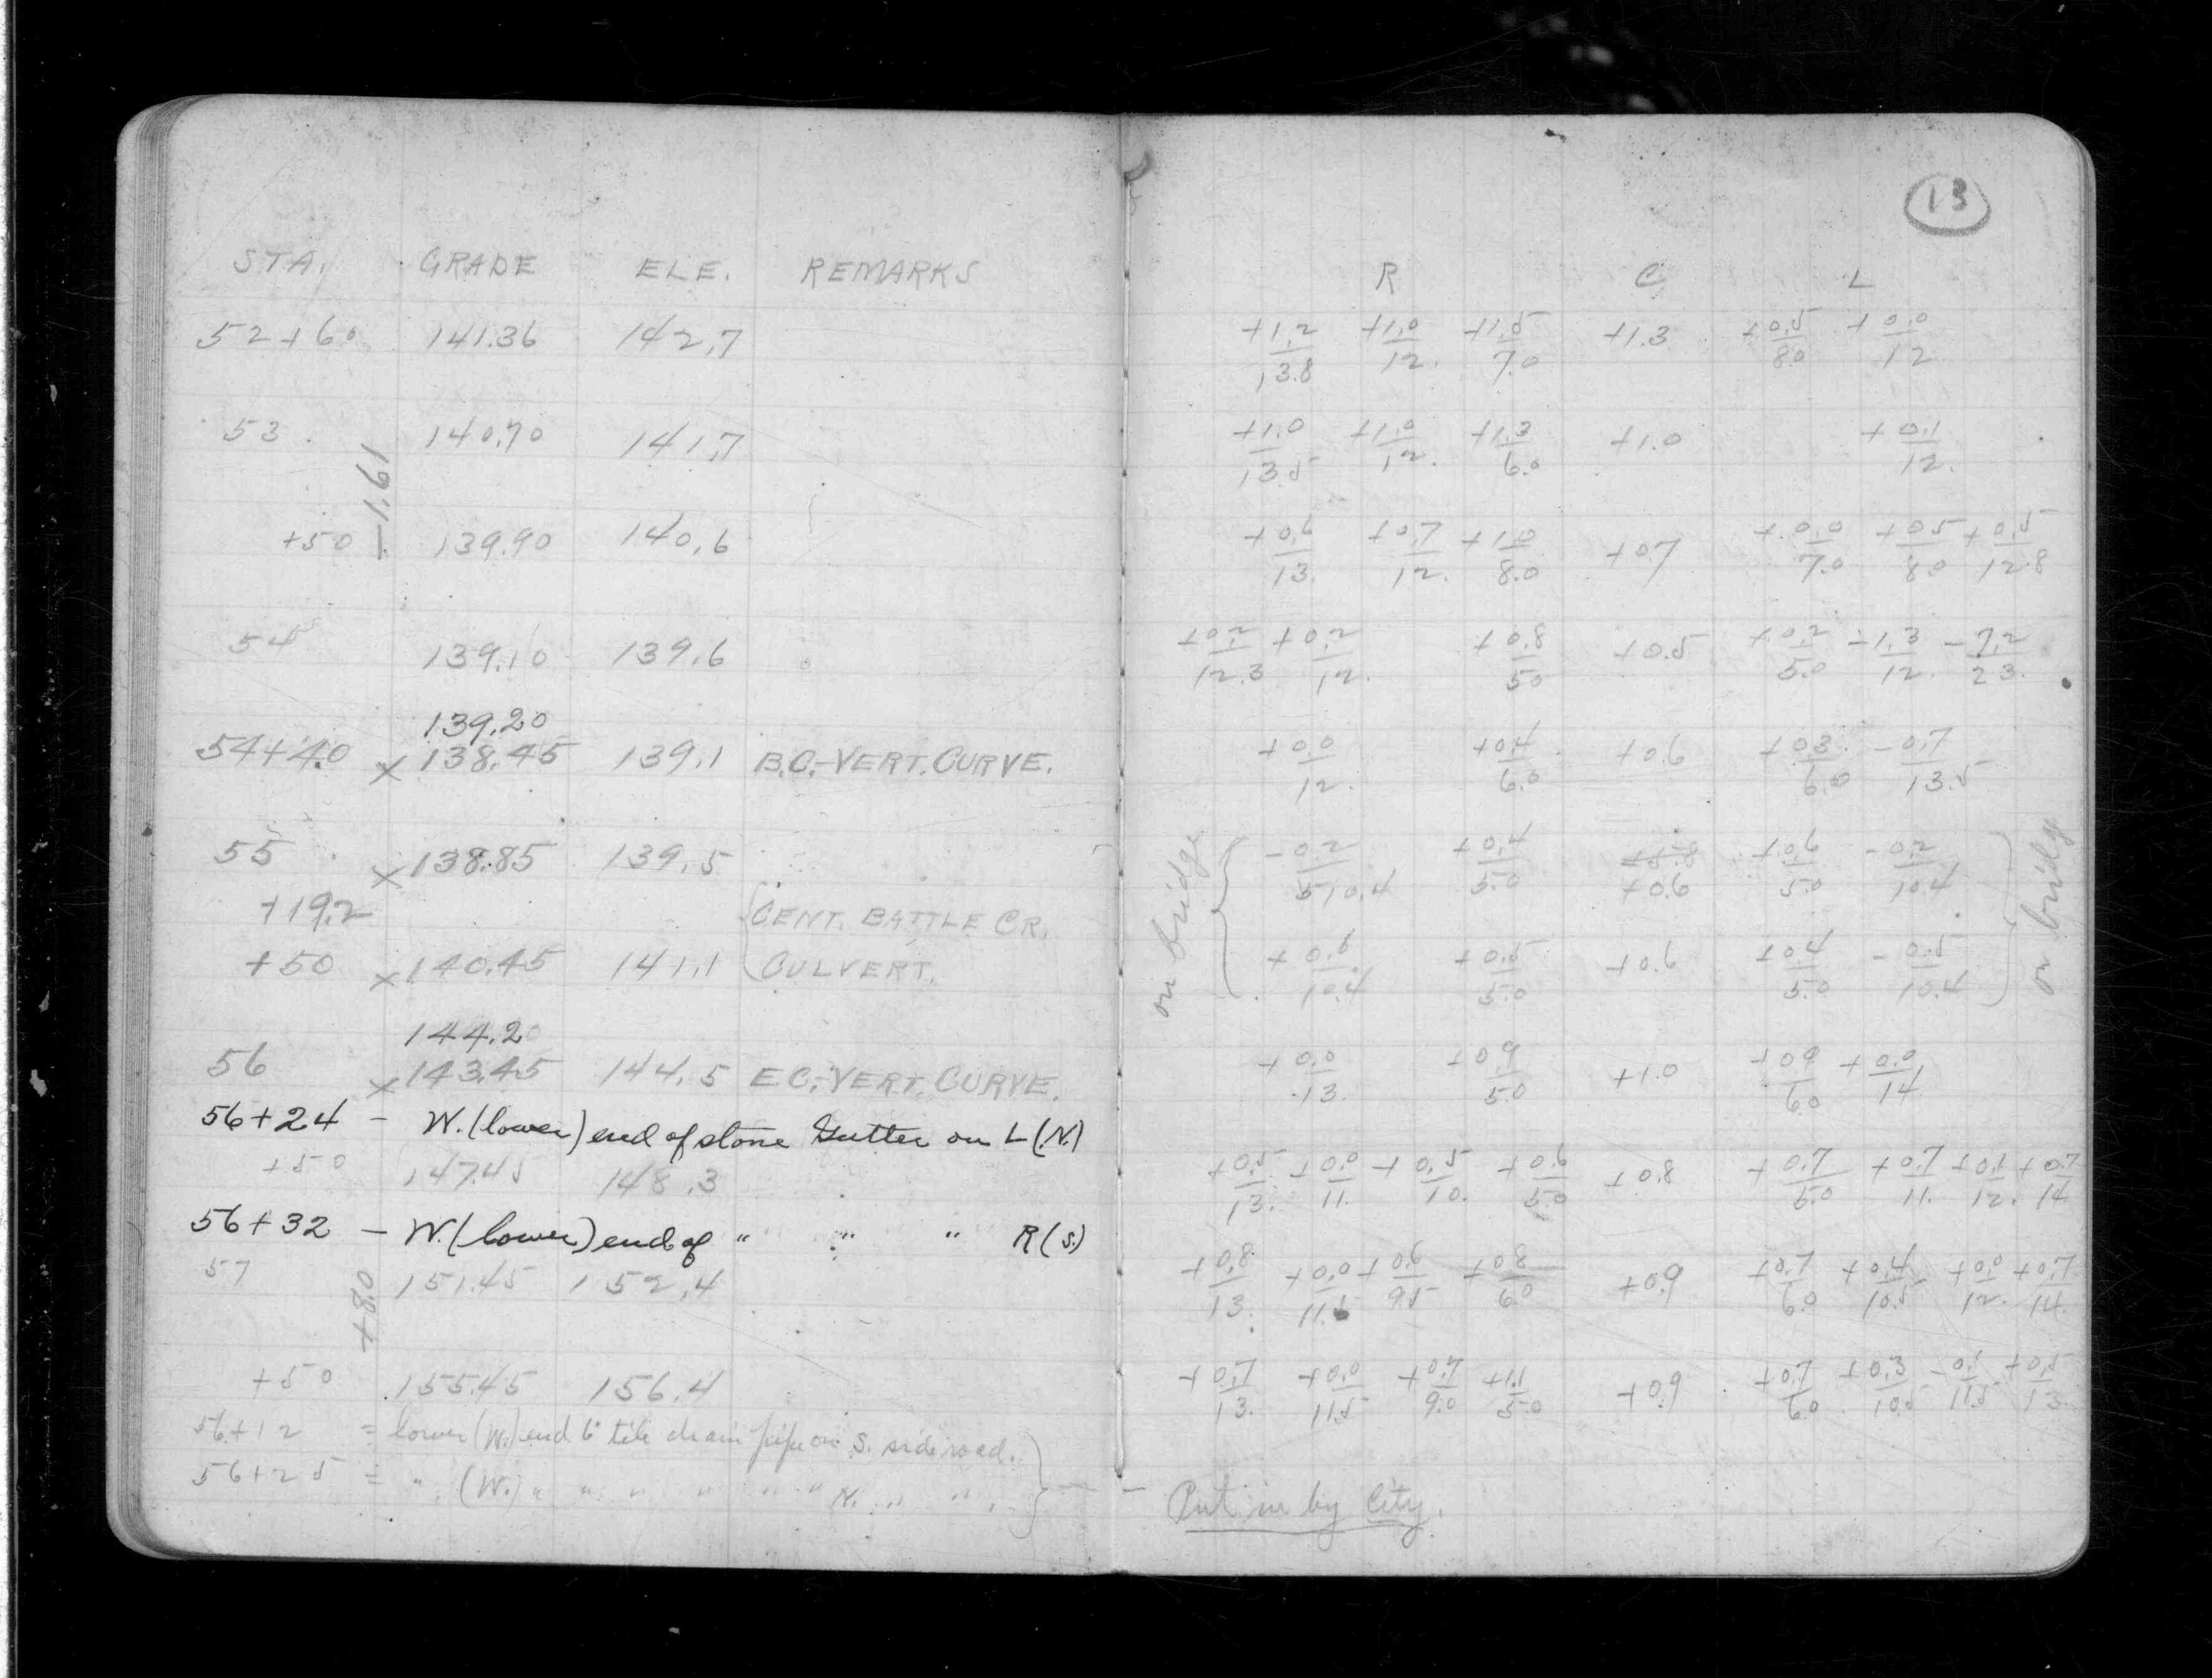 STA. GRADE ELE. REMARKS
52+60 141.36 142.7
53 140.70 141.7
-1.61
+50 139.90 140.6
54 139.10 139.6
139.20
54+40 x 138.45 139.1 B.C.-VERT. CURVE.
55 x 138.85 139.5
+19.2 CENT. BATTLE CR.
+50 x 140.45 141.1 CULVERT.
144.20
56 x 143.45 144.5 E.C.-VERT. CURVE.
56+24 - W. (lower) end of stone Gutter on L (N.)
+50 147.45 148.3
56+32 - W. (lower) end of " " " R (S.)
57 151.45 152.4
+8.0
+50 155.45 156.4
56+12 = lower (W.) end 6" tile drain pipe on S. side road.
56+25 = " (W.) " " " " " " " N. " " .
13
R C L
+1.2/13.8 +1.0/12. +1.5/7.0 +1.3 +0.5/8.0 +0.0/12
+1.0/13.5 +1.0/12. +1.3/6.0 +1.0 +0.1/12.
+0.6/13. +0.7/12. +1.0/8.0 +0.7 +0.0/7.0 +0.5/8.0 +0.5/12.8
+0.2/12.3 +0.2/12. +0.8/5.0 +0.5 +0.2/5.0 -1.3/12. -7.2/23.
+0.0/12. +0.4/6.0 +0.6 +0.3/6.0 -0.7/13.5
on bridge
-0.2/10.4 +0.4/5.0 +0.6 +0.6/5.0 -0.2/10.4
+0.6/10.4 +0.5/5.0 +0.6 +0.4/5.0 -0.5/10.4
on bridg
+0.0/13. +0.9/5.0 +1.0 +0.9/6.0 +0.0/14.
+0.5/13. +0.0/11. +0.5/10. +0.6/5.0 +0.8 +0.7/5.0 +0.7/11. +0.1/12. +0.7/14
+0.8/13. +0.0/11.5 +0.6/9.5 +0.8/6.0 +0.9 +0.7/6.0 +0.4/10.5 +0.0/12. +0.7/14.
+0.7/13. +0.0/11.5 +0.7/9.0 +1.1/5.0 +0.9 +0.7/6.0 +0.3/10.5 -0.1/11.5 +0.5/13
Put in by City.